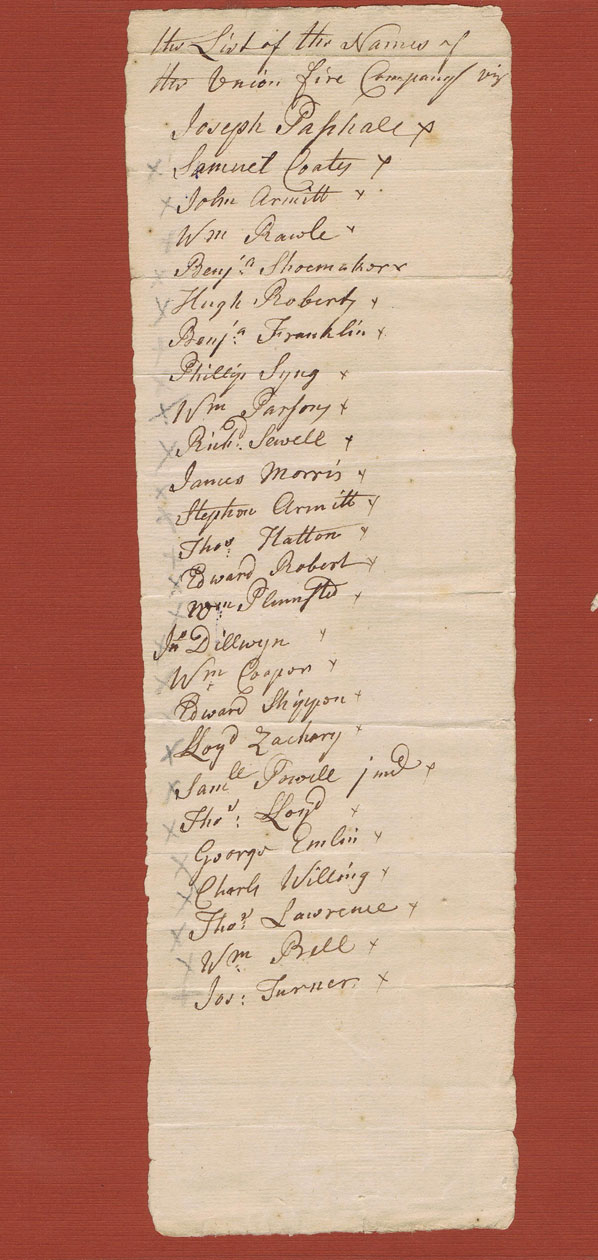 the List of the Names of
the Union fire Company viz
Joseph Paschall x
Samuel Coats x
John Armitt x
Wm Rawle x
Benj:a Shoemaker x
Hugh Roberts x
Benj:a Franklin x
Phillip Syng x
Wm Parsons x
Rich:d Sewell x
James Morris x
Stephen Armitt x
Tho:s Hatton x
Edward Robert x
Wm Plumsted x
Jno Dillwyn x
Wm Cooper x
Edward Shippen x
Lloyd Zachary x
Samll Powell jund x
Tho:s Lloyd x
George Emlin x
Charls Willing x
Tho:s Lawrence x
Wm Bell x
Jos: Turner x